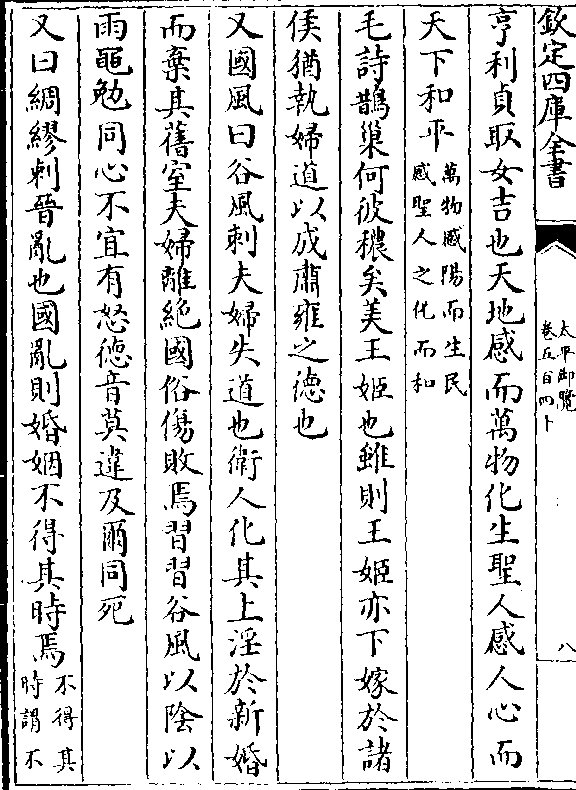 欽定四庫全書
太平御覽
卷五百四十
八
亨利貞取女吉也天地感而萬物化生聖人感人心而
天下和平萬物感陽而生民
感聖人之化而和
毛詩鵲巢何彼穠矣美王姬也雖則王姬亦下嫁於諸
侯猶執婦道以成肅雍之德也
又國風曰谷風刺夫婦失道也衛人化其上淫於新婚
而棄其舊室夫婦離絶國俗傷敗焉習習谷風以陰以
雨黽勉同心不宜有怒德音莫違及爾同死
又曰綢繆刺晉亂也國亂則婚姻不得其時焉不得其
時謂不